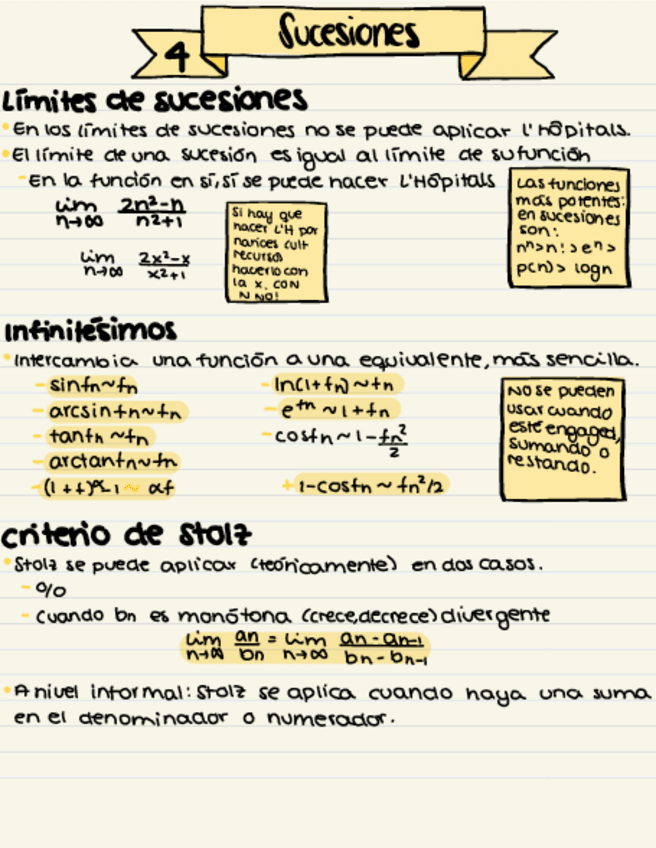 4
Sucesiones
Límites de sucesiones
En los límites de sucesiones no se puede aplicar l'hôpitals.
El límite de una sucesión es igual al límite de su función
- En la función en sí, sí se puede hacer L'Hôpitals
lim n→∞ 2n²-n / n²+1
lim n→∞ 2x²-x / x²+1
Si hay que
hacer L'H por
narices
recursos
hacerlo con
la x. CON
N NO!
Las funciones
más potentes:
en sucesiones
son:
nⁿ>n!>eⁿ>
p(n)> logn
Infinitésimos
Intercambia una función a una equivalente, más sencilla.
- sinfn~fn
- arcsinfn~fn
- tanfn ~fn
- arctanfn~fn
- (1+f)ᵅ-1 ~ αf
- ln(1+fn)~fn
- eᶠⁿ ~ 1+fn
- cosfn ~ 1- fn²/2
+ 1-cosfn ~ fn²/2
No se pueden
usar cuando
esté engaged,
sumando o
restando.
Criterio de Stolz
Stolz se puede aplicar (teóricamente) en dos casos.
- 0/0
- Cuando bn es monótona (crece,decrece) divergente
lim n→∞ an/bn = lim n→∞ an-an-1 / bn-bn-1
A nivel informal: Stolz se aplica cuando haya una suma
en el denominador o numerador.